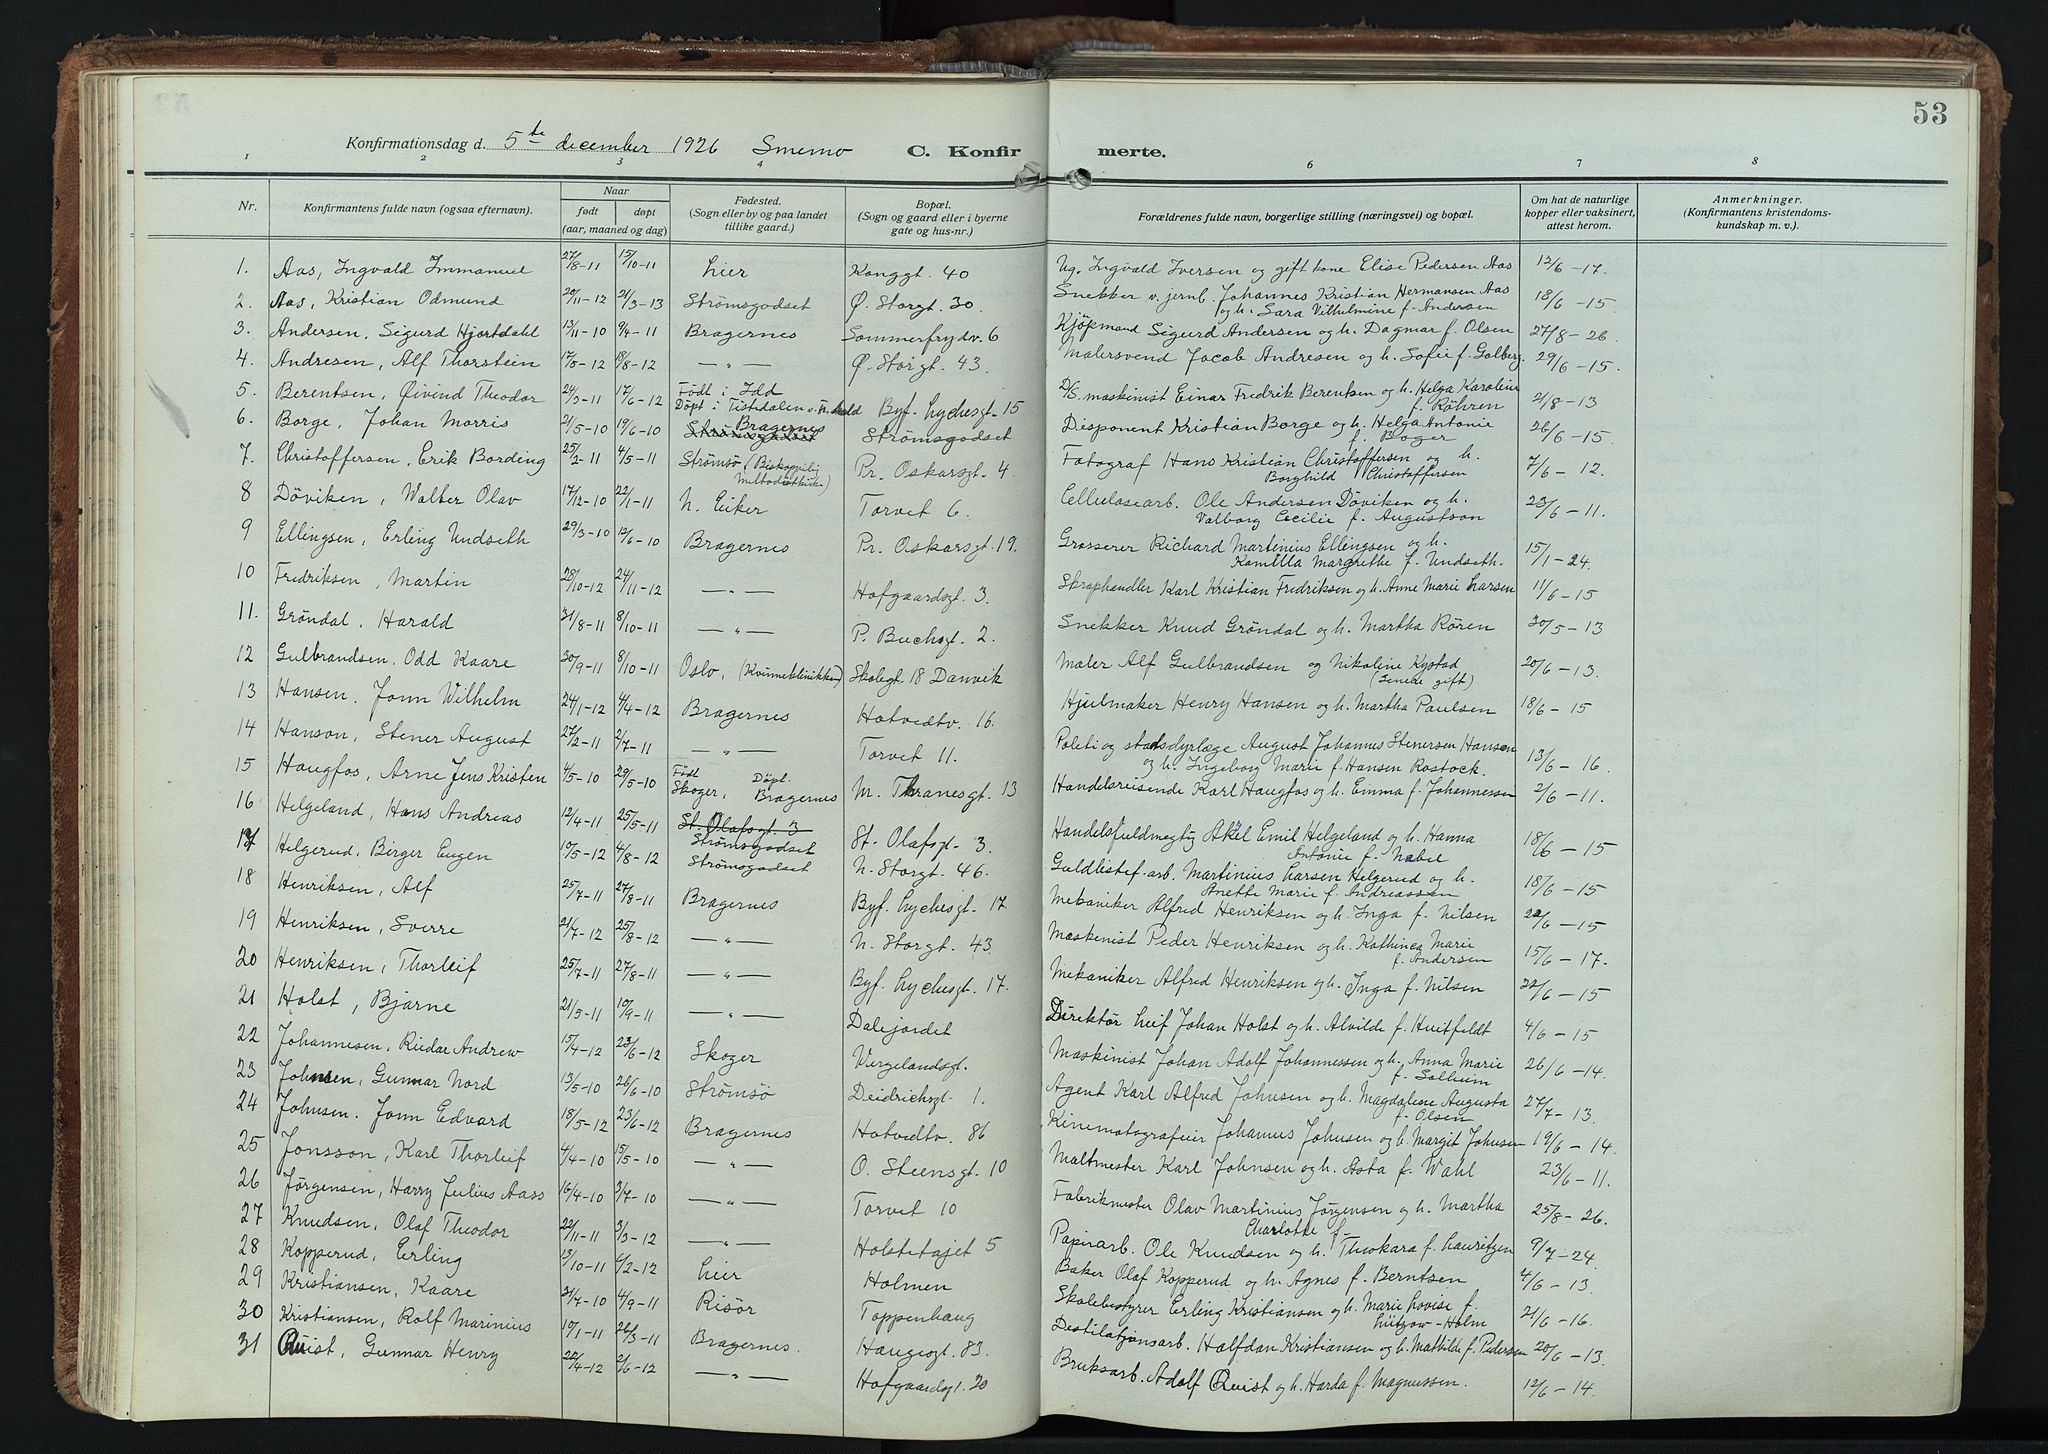 53
Konfirmationsdag d. 5te december 1926 Smemo C. Konfirmerte.
1 2 3 4 6 7 8
Nr. Konfirmantens fulde navn (ogsaa efternavn). Naar født døpt (aar, maaned og dag) Fødested. (Sogn eller by og paa landet tillike gaard.) Bopæl. (Sogn og gaard eller i byerne gate og hus-nr.) Forældrenes fulde navn, borgerlige stilling (næringsvei) og bopæl. Om hat de naturlige kopper eller vaksinert, attest herom. Anmerkninger. (Konfirmantens kristendoms-kundskap m. v.).
1. Aas, Ingvald Immanuel 27/8-11 15/10-11 Lier Konggt. 40 Ug. Ingvald Iversen og gift kone Elise Pedersen Aas 12/6-17.
2. Aas, Kristian Odmund 20/11-12 21/3-13 Strømsgodset Ø. Storgt. 30 Snekker v. jernb. Johannes Kristian Hermansen Aas og h. Sara Vilhelmine f. Andersen 18/6-15
3. Andersen, Sigurd Hjortdahl 13/11-10 9/4-11 Bragernes Sommerfrydv. 6 Kjøpmand Sigurd Andersen og h. Dagmar f. Olsen 27/8-26
4. Andresen, Alf Thorstein 17/5-12 18/8-12 —„— Ø. Storgt. 43. Malersvend Jacob Andresen og h. Sofie f. Golberg. 29/6-15.
5. Berentsen, Øivind Theodor 24/3-11 17/6-12 Født i Idd Døpt i Tistedalen Byf. Lychesgt. 15 D/S. maskinist Einar Fredrik Berentsen og h. Helga Karoline f. Röhren 2/8-13
6. Borge, Johan Morris 21/5-10 19/6-10 Bragernes Strømsgodset Strømsgodset Disponent Kristian Borge og h. Helga Antonie f. Boger 26/6-15.
7. Christoffersen, Erik Bording 25/2-11 4/5-11 Strømsö (Biskoppelig Metodistkirke) Pr. Oskarsgt. 4. Fotograf Hans Kristian Christoffersen og h. Borghild Christoffersen 7/6-12.
8 Döviken, Walter Olav 17/12-10 22/1-11 N. Eiker Torvet 6. Cellulosearb. Ole Andersen Döviken og h. Valborg Cecilie f. Augustson 23/6-11.
9 Ellingsen, Erling Undseth 29/3-10 12/6-10 Bragernes Pr. Oskarsgt. 19. Grosserer Richard Martinius Ellingsen og h. Kamilla Margrethe f. Undseth. 15/1-24.
10 Fredriksen, Martin 28/10-12 24/11-12 —„— Hofgaardsgt. 3. Skraphandler Karl Kristian Fredriksen og h. Anne Marie Larsen 11/6-15
11. Gröndal, Harald 31/8-11 8/10-11 —„— P. Buchsgt. 2. Snekker Knud Gröndal og h. Martha Rören 30/5-13
12 Gulbrandsen. Odd Kaare 30/9-11 8/10-11 Oslo, (Kvinneklinikken) Skolegt. 18 Danvik Maler Alf Gulbrandsen og Nikoline Kystad (senere gift) 20/6-13.
13 Hansen. Jonn Wilhelm 24/1-12 4/4-12 Bragernes Hotvedtv. 16. Hjulmaker Henry Hansen og h. Martha Paulsen 18/6-15
14 Hanson, Stener August 27/2-11 2/7-11 —„— Torvet 11. Politi og stadsdyrlæge August Johannes Stenersen Hansen og h. Ingeborg Marie f. Hansen Rostock. 13/6-16.
15 Haugfos, Arne Jens Kristen 4/5-10 29/5-10 Født Skoger, Döpt. Bragernes M. Thranesgt. 13 Handelsreisende Karl Haugfos og h. Emma f. Johannessen 2/6-11.
16 Helgeland, Hans Andreas 12/4-11 25/5-11 St. Olafsgt. 3 Strømsgodset St. Olafsgt. 3. Handelsfuldmegtig Aksel Emil Helgeland og h. Hanna Antonie f. Nabel 18/6-15
17 Helgerud, Birger Eugen 10/5-12 4/8-12 Strømsgodset N. Storgt. 46. Guldlistef. arb. Martinius Larsen Helgerud og h. Anette Marie f. Andreassen 18/6-15
18 Henriksen, Alf 25/7-11 27/8-11 Bragernes Byf. Lychesgt. 17 Mekaniker Alfred Henriksen og h. Inga f. Nilsen 22/6-15
19 Henriksen, Sverre 21/7-12 25/8-12 —„— N. Storgt. 43 Maskinist Peder Henriksen og h. Kathinca Marie f. Andersen 15/6-17.
20 Henriksen, Thorleif 25/7-11 27/8-11 —„— Byf. Lychesgt. 17. Mekaniker Alfred Henriksen og h. Inga f. Nilsen 22/6-15
21 Holst, Bjarne 21/5-11 10/9-11 —„— Dalejordet Direktør Leif Johan Holst og h. Alvilde f. Huitfeldt 4/6-15
22 Johannesen, Reidar Andrew 15/4-12 23/6-12 Skoger Vergelandsgt. Maskinist Johan Adolf Johannessen og h. Anna Marie f. Solheim 26/6-14.
23 Johnsen, Gunnar Nord 13/5-10 26/6-10 Strømsö Deidrichsgt. 1. Agent Karl Alfred Johnsen og h. Magdalene Augusta f. Olsen 27/7-13.
24 Johnsen. Jonn Edvard 18/5-12 23/6-12 Bragernes Hotvedtv. 86 Kinematografeier Johannes Johnsen og h. Margit Johnsen 19/6-14.
25 Jonsson, Karl Thorleif 4/4-10 15/5-10 —„— O. Steensgt. 10 Maltmester Karl Johnsen og h. Asta f. Wahl 23/6-11.
26 Jørgensen, Harry Julius Aass 16/4-10 3/7-10 —„— Torvet 10 Fabrikmester Olav Martinius Jørgensen og h. Martha Charlotte f— 25/8-26.
27 Knudsen, Olaf Theodor 22/11-11 3/3-12 —„— Holstetajet 5 Papirarb. Ole Knudsen og h. Theokara f. Lauritzen 9/7-24.
28 Kopperud, Erling 13/10-11 4/2-12 Lier Holmen Baker Olaf Kopperud og h. Agnes f. Berntsen 4/6-13.
29 Kristiansen, Kaare 31/7-10 4/9-11 Risör Toppenhaug Skolebestyrer Erling Kristiansen og h. Marie Lovise f. Lützow-Holm 21/6-16.
30 Kristiansen, Rolf Marinius 10/1-11 26/3-11 Bragernes. Haugesgt. 83. Destilatjonsarb. Halfdan Kristiansen og h. Mathilde f. Pedersen 20/6-13.
31 Quist, Gunnar Henry 22/4-12 2/6-12 —„— Hofgaardsgt. 20 Bruksarb. Adolf Quist og h. Harda f. Magnussen. 12/6-14.